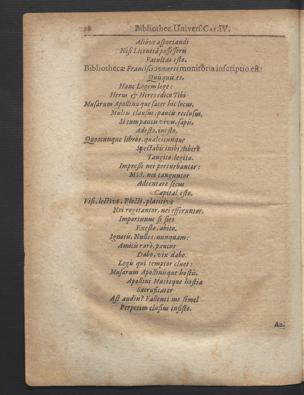 38 Bibliothec. Univers. Cap. IV.
Aliòve asportandi
Nisi Licentiâ possessorn
Facultas esto.
Bibliothecæ Francisci monitoria inscriptio est:
Quisquis es,
Hanc Legem lege:
Herus & Heres edico Tibi
Musarum Apollinisque sacer hic locus,
Multis clausus, paucis reclusus,
Si tum paucis vivu, sapis,
Adesto, insto.
Quoscunque libros, qualescunque
Spectabis inibi, liberè
Tangito, legito.
Impressi nei perturbantor:
MSS. nei tanguntor
Adtentare secus
Capital esto.
Visis, lectisve. Plecti, placitive
Nei rogitantor, nei efferuntor.
Importunus si sies
Exesto, abito.
Ignotis, Nullos, nunquam:
Amicis rarò, paucos
Dabo, vix dabo.
Legis qui temptor cluet:
Musarum Apollinisque hostis,
Apollini Musisque hostia
Sacrificator
Ast audin? Fallenti me semel
Perpetim clusius insisto.